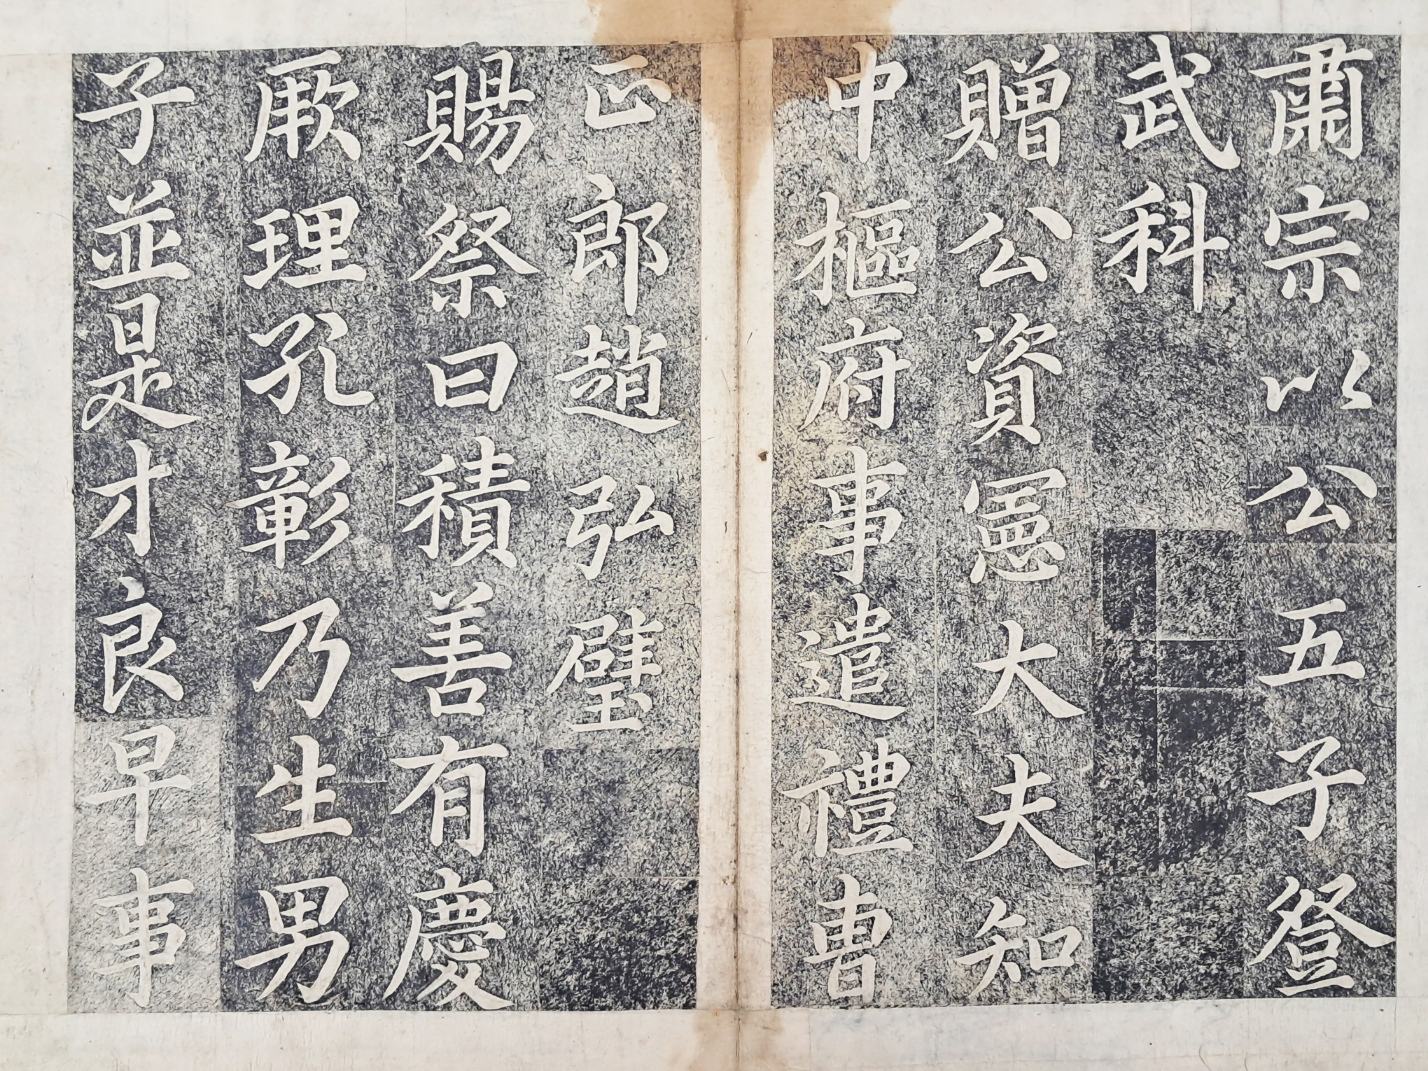 肅宗以公五子登
武科
贈公資憲大夫知
中樞府事遣禮曺
正郎趙弘璧
賜祭曰積善有慶
厥理孔彰乃生男
子並是才良早事